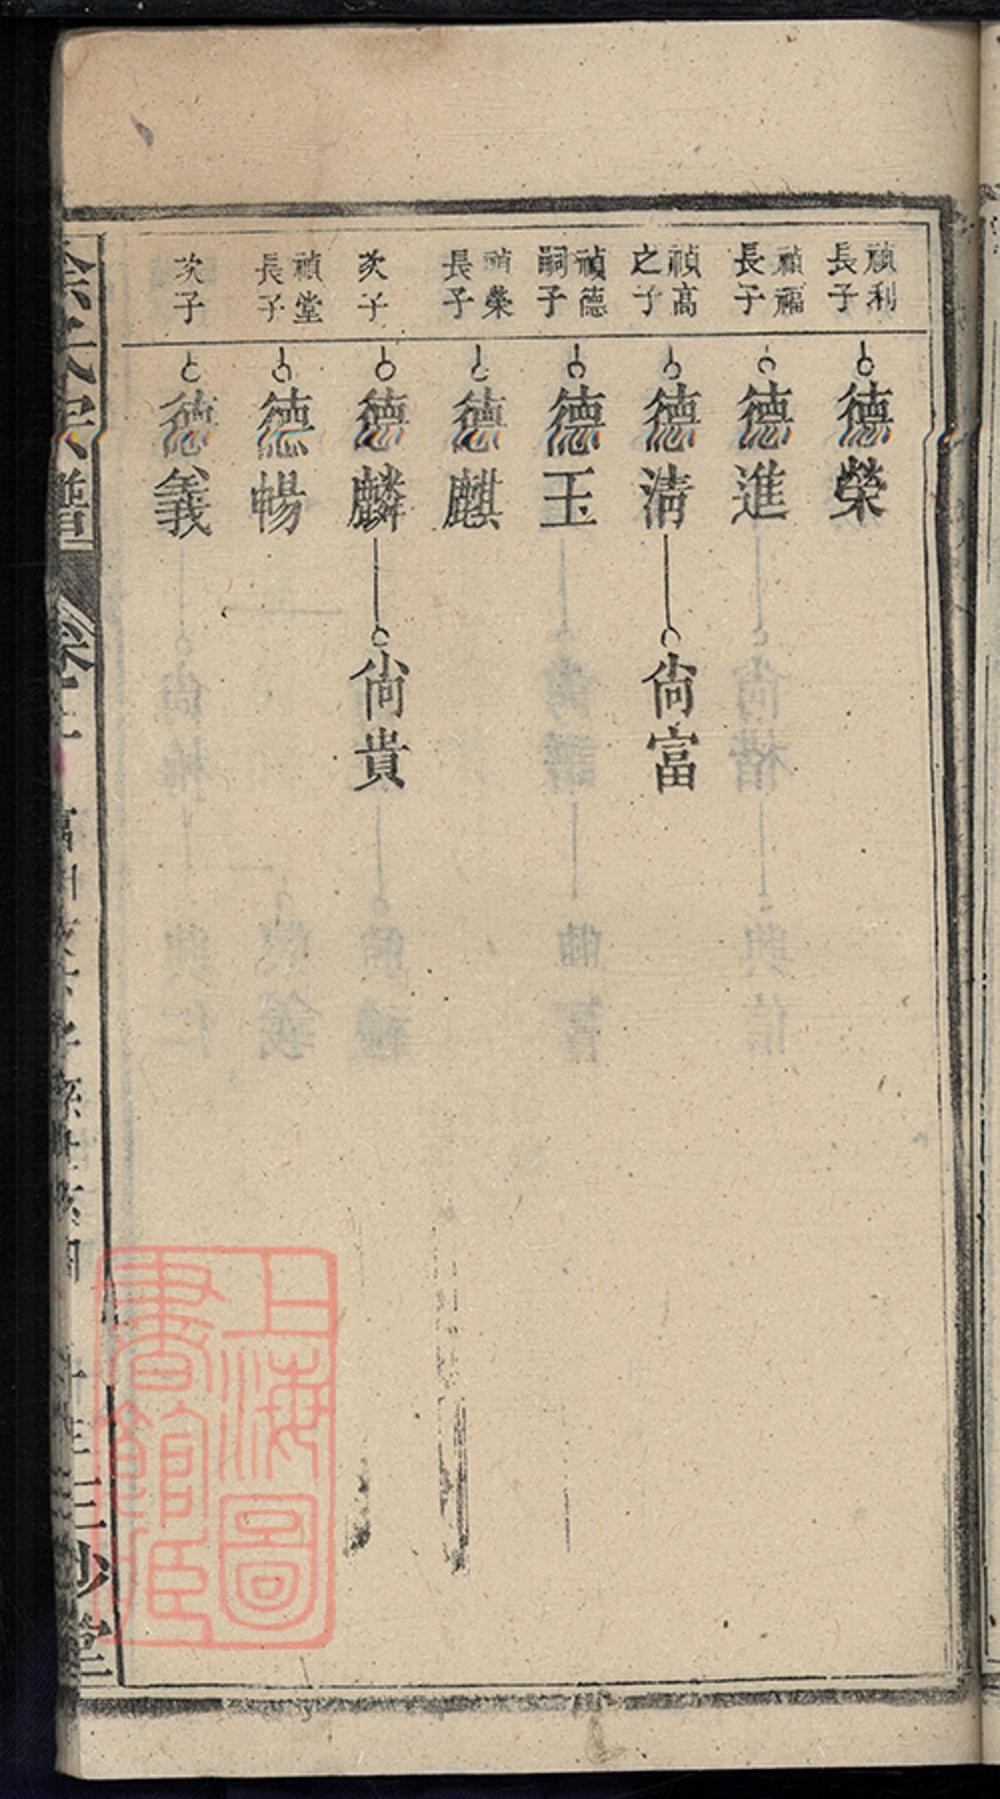 禎利長子
德榮
禎福長子
德進
禎高之子
德清
尚富
禎德嗣子
德玉
禎榮長子
德麒
次子
德麟
尚貴
禎堂長子
德暢
次子
德義
三妙堂
上海圖書館藏